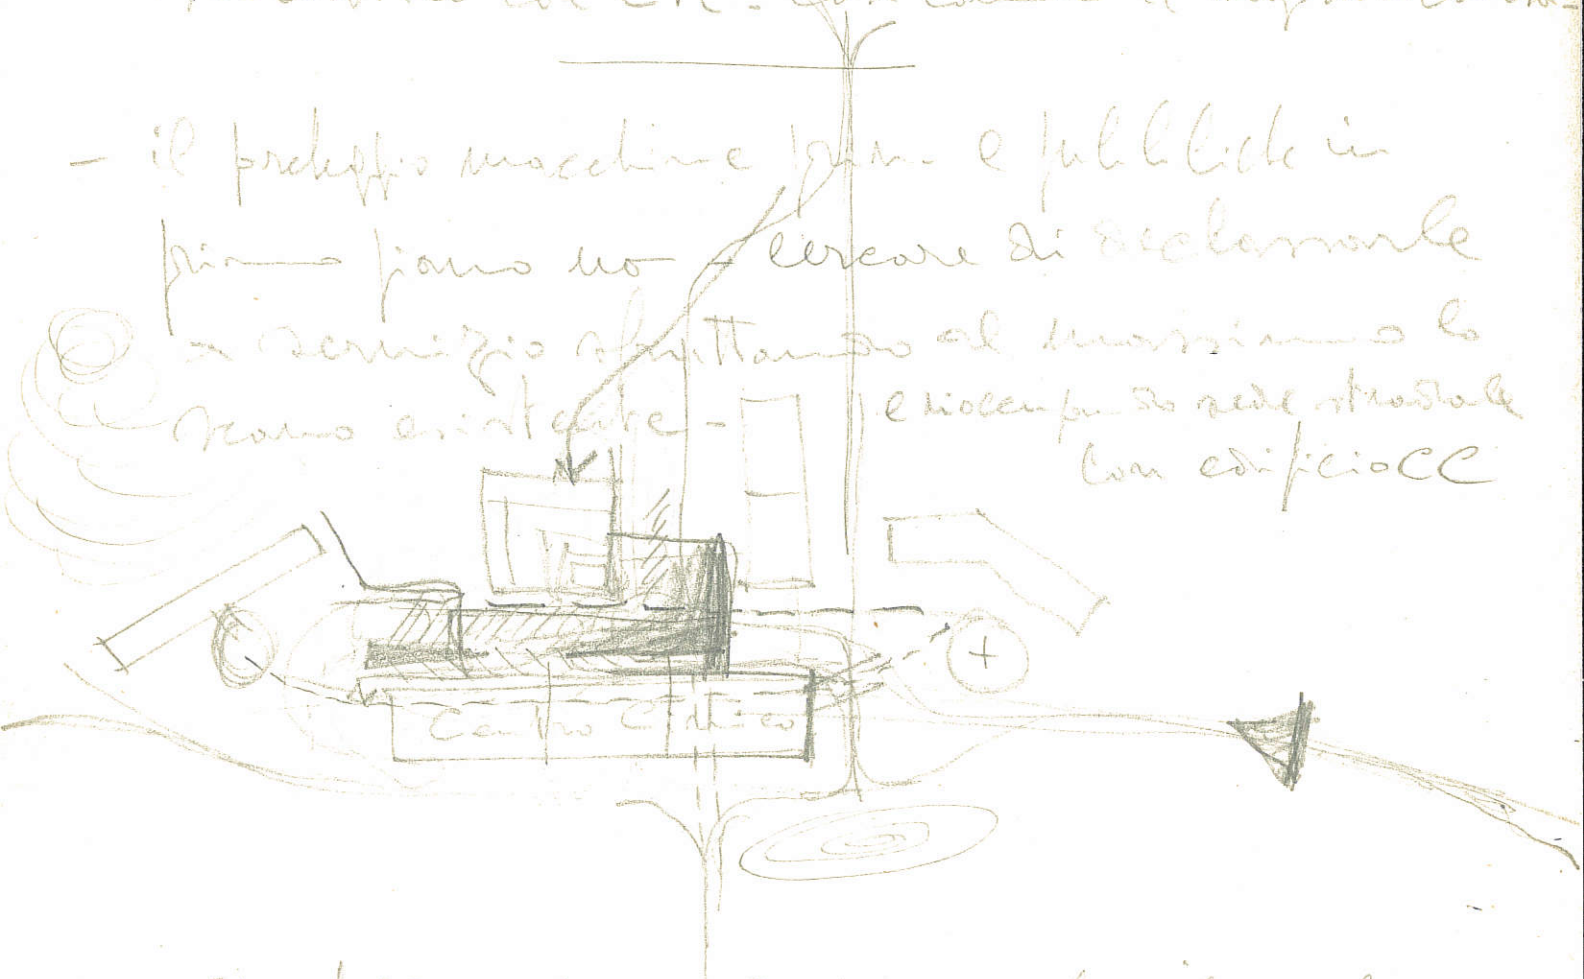 - il parcheggio macchine priv. e pubbliche in
primo piano no - cercare di declassarle
a servizio sfruttando al massimo lo
scavo esistente -
e rioccupando sede stradale
con edificio CC
Centro Civico